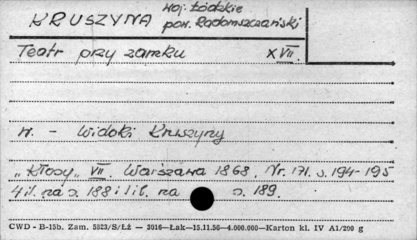 KRUSZYNA woj. Łódzkie
pow. Radomszczański
Teatr przy zamku XVII.
n. - Widoki Kruszyny
"Kłosy" VII. Warszawa 1868. Nr. 171. s. 194-195
4 il. na s. 188 i 1 il. na s. 189.
CWD - B-15b. Zam. 5823/S/ŁŻ — 2016—Łak—15.11.56—4.000.000—Karton kl. IV A1/200 g